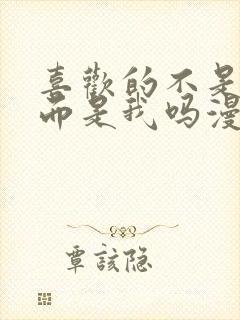 喜歡的不是
而是我吗漫
覃該隐